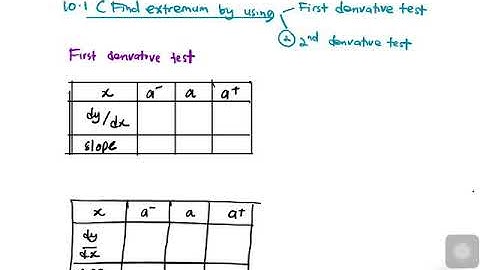 10.1 C Find extremum by using First derivative test
② 2nd derivative test
First derivative test
x a- a a+
dy/dx
slope
x a- a a+
dy
dx